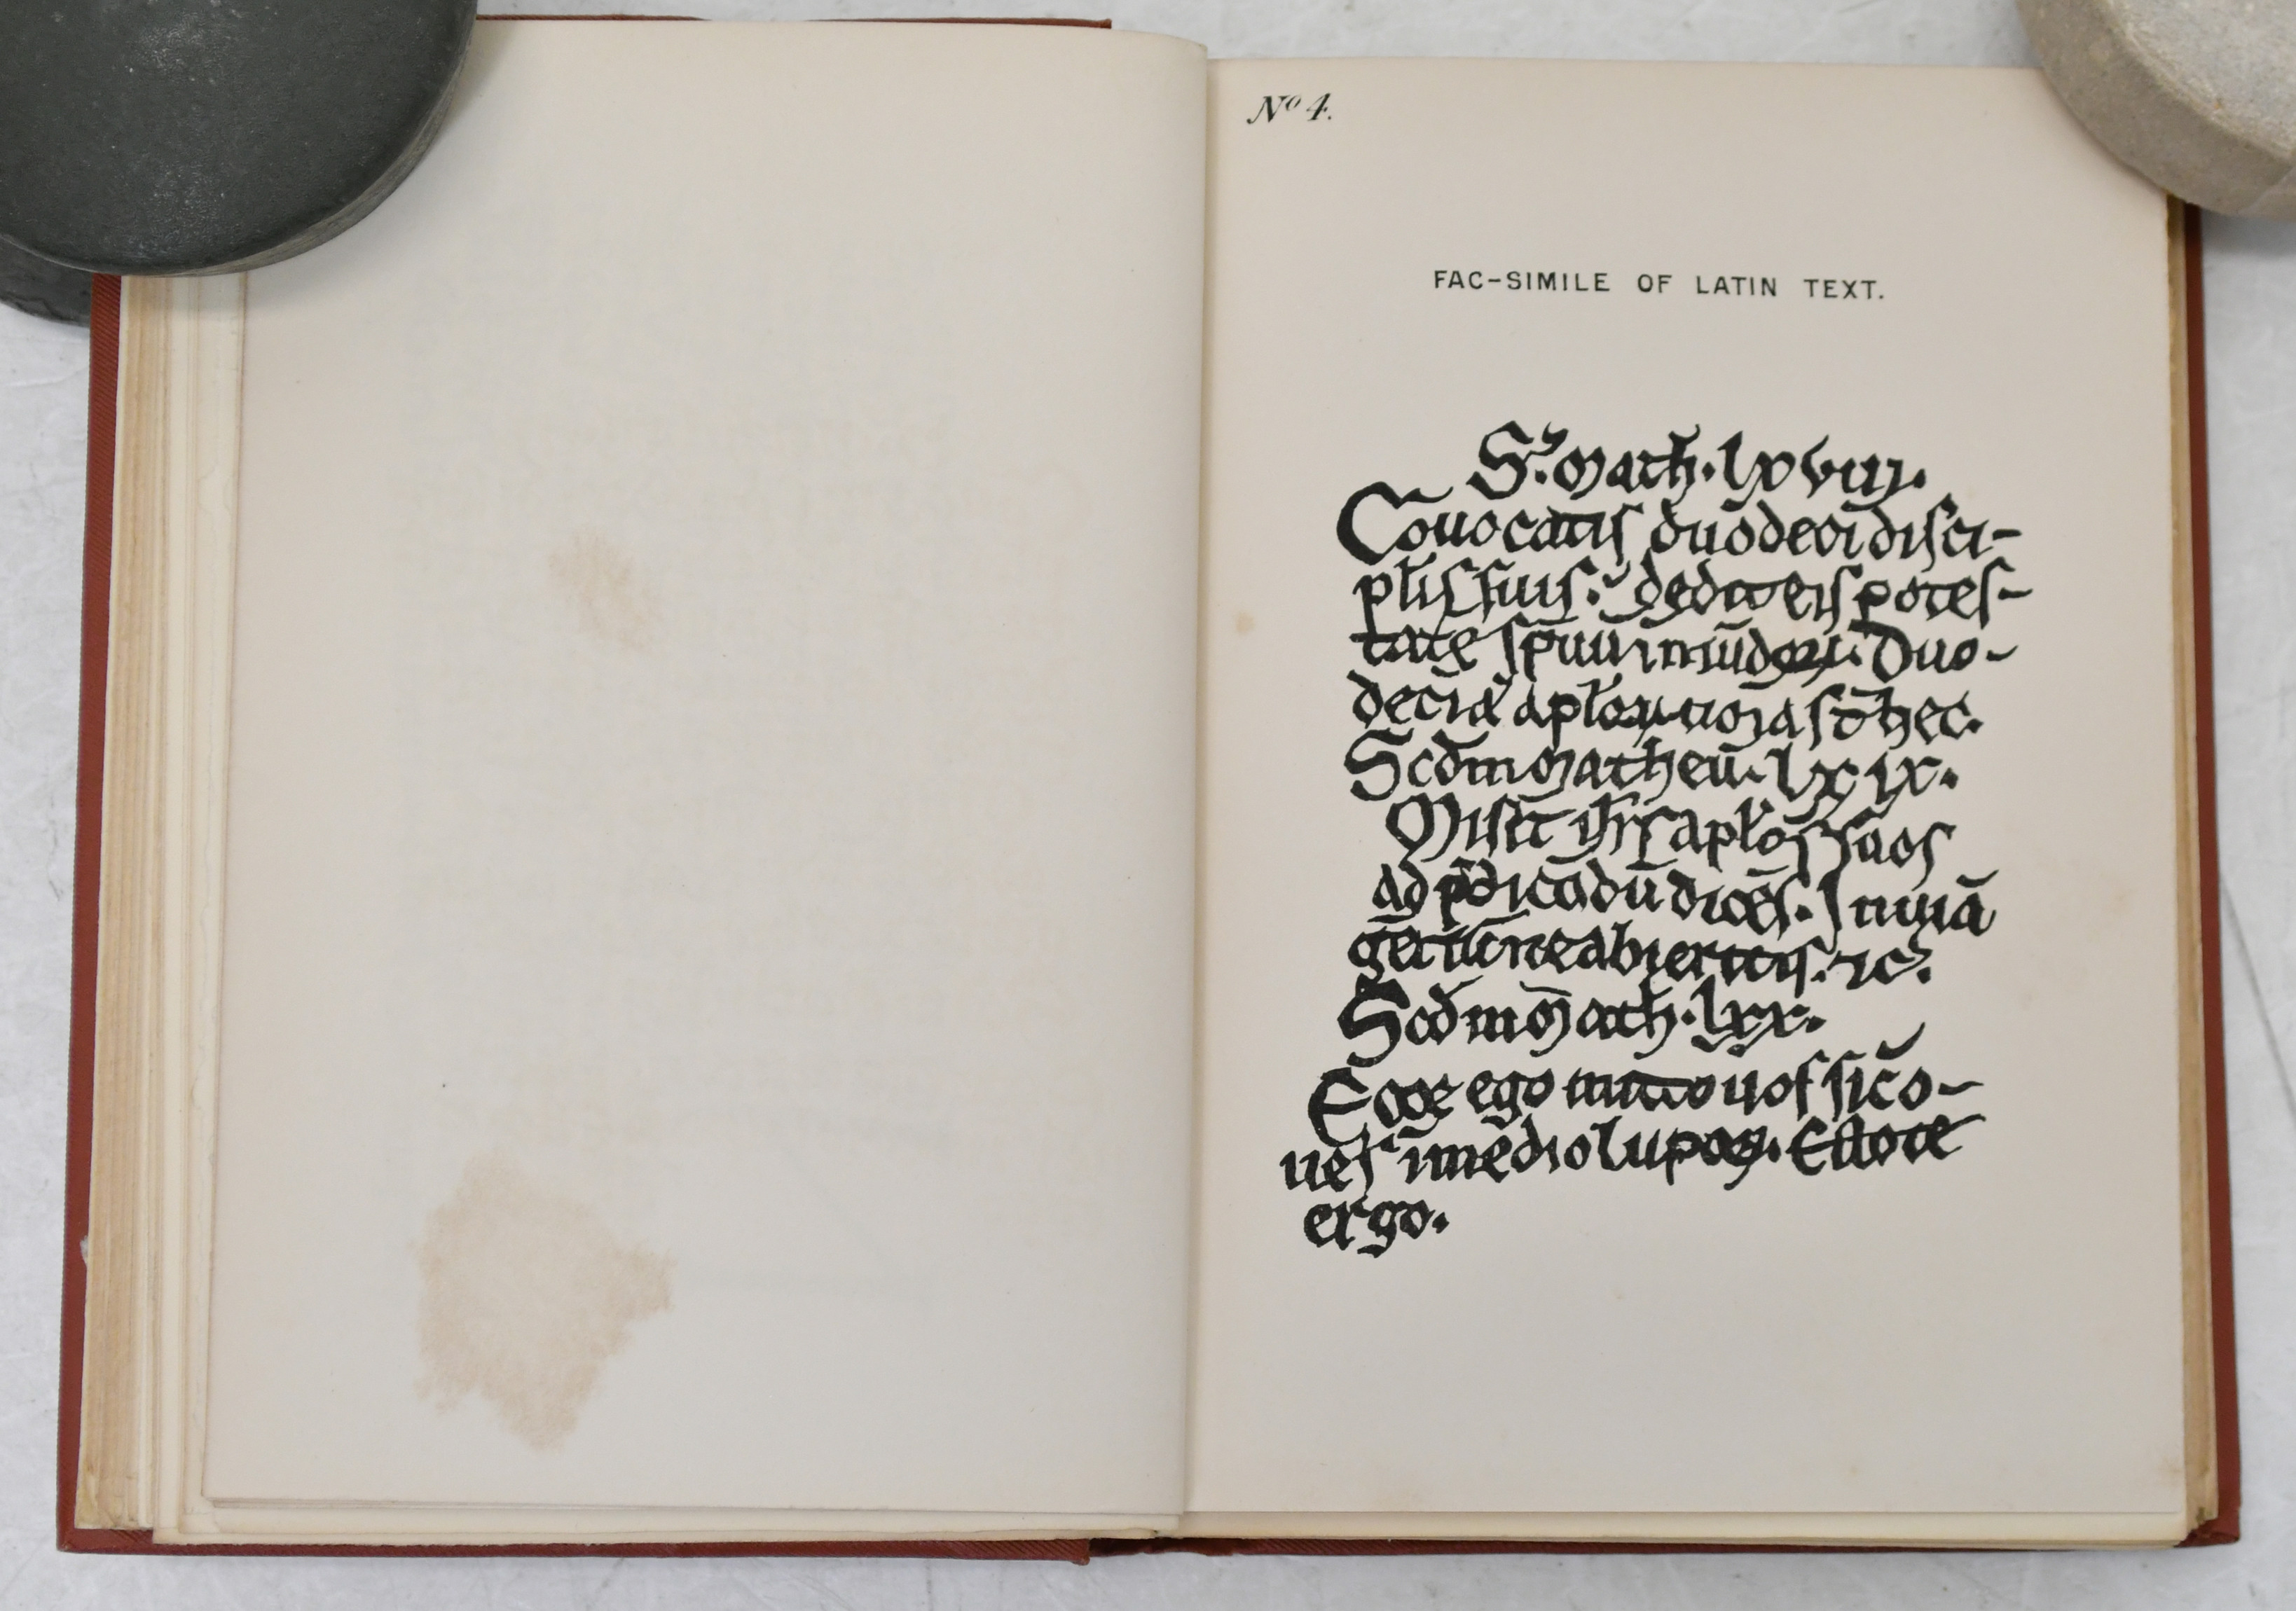 Nº 4.
FAC-SIMILE OF LATIN TEXT.
S. Math. lxviii.
Cōuocatis duodecī disci-
płis suis: dedit eis potes-
tatē sp̄uū īmūdoꝝ. Duo-
decī apłoꝝ noīa sт̄ hec.
Scd̄m Matheū. lxix.
Misit ih̄s apłos suos
ad p̄dicādū dicēs. In uiā
gētiū ne abieritis. ⁊c̄.
Scd̄m Math. lxx.
Ecce ego mitto uos sic o-
ues ī medio lupoꝝ. Estote
ergo.